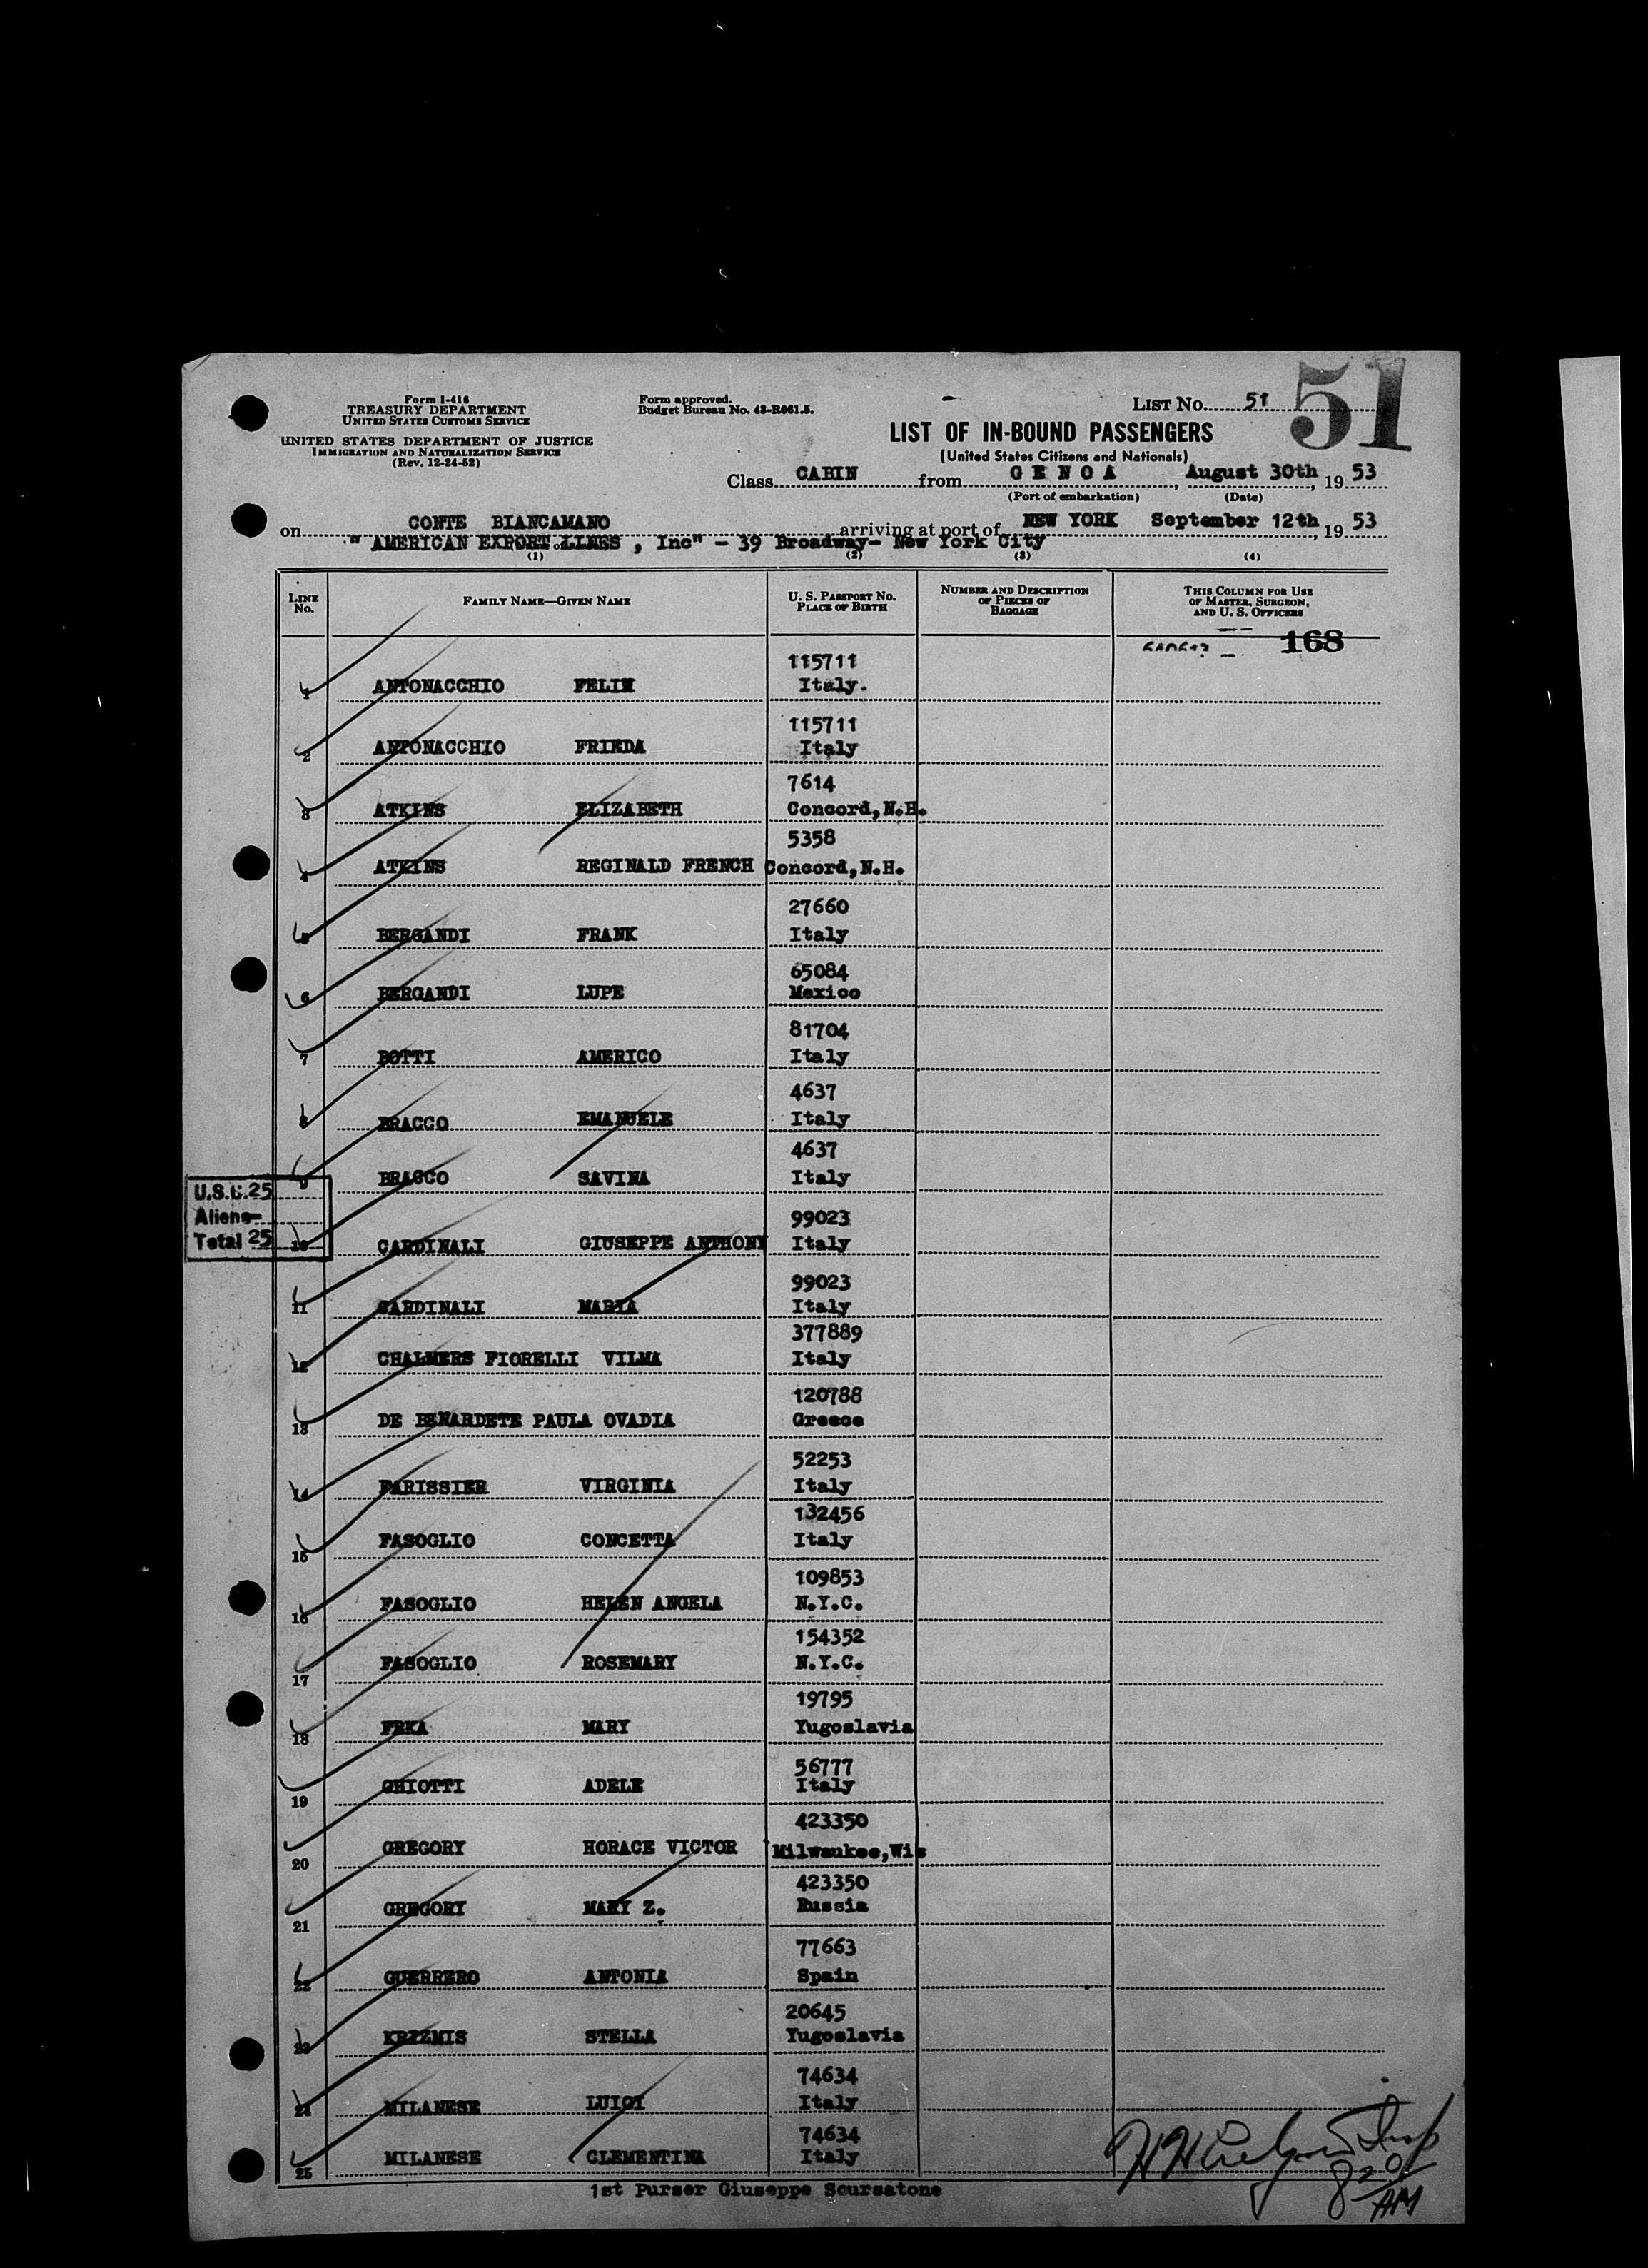 51
Form I-416
TREASURY DEPARTMENT
UNITED STATES CUSTOMS SERVICE
UNITED STATES DEPARTMENT OF JUSTICE
IMMIGRATION AND NATURALIZATION SERVICE
(Rev. 12-24-52)
Form approved.
Budget Bureau No. 43-R061.5.
LIST No. 51
LIST OF IN-BOUND PASSENGERS
(United States Citizens and Nationals)
Class CABIN from G E N O A, August 30th, 19 53
(Port of embarkation) (Date)
on CONTE BIANCAMANO arriving at port of NEW YORK September 12th, 19 53
" AMERICAN EXPORT LINES , Inc" - 39 Broadway- New York City
(1) (2) (3) (4)
LINE No. FAMILY NAME—GIVEN NAME U. S. PASSPORT No. PLACE OF BIRTH NUMBER AND DESCRIPTION OF PIECES OF BAGGAGE THIS COLUMN FOR USE OF MASTER, SURGEON, AND U. S. OFFICERS
168
115711
1 ANTONACCHIO FELIX Italy.
115711
2 ANTONACCHIO FRIEDA Italy
7614
3 ATKINS ELIZABETH Concord,N.H.
5358
4 ATKINS REGINALD FRENCH Concord,N.H.
27660
5 BERGANDI FRANK Italy
65084
6 BERGANDI LUPE Mexico
81704
7 BOTTI AMERICO Italy
4637
8 BRACCO EMANUELE Italy
4637
9 BRACCO SAVINA Italy
U.S.C. 25
Aliens-
Total 25
99023
10 CARDINALI GIUSEPPE ANTHONY Italy
99023
11 CARDINALI MARIA Italy
377889
12 CHALMERS FIORELLI VILMA Italy
120788
13 DE BENARDETE PAULA OVADIA Greece
52253
14 FARISSIER VIRGINIA Italy
132456
15 FASOGLIO CONCETTA Italy
109853
16 FASOGLIO HELEN ANGELA N.Y.C.
154352
17 FASOGLIO ROSEMARY N.Y.C.
19795
18 FRKA MARY Yugoslavia
56777
19 GHIOTTI ADELE Italy
423350
20 GREGORY HORACE VICTOR Milwaukee,Wis
423350
21 GREGORY MARY Z. Russia
77663
22 GUERRERO ANTONIA Spain
20645
23 KRIZMIS STELLA Yugoslavia
74634
24 MILANESE LUIGI Italy
74634
25 MILANESE CLEMENTINA Italy
1st Purser Giuseppe Scursatone
820
AM